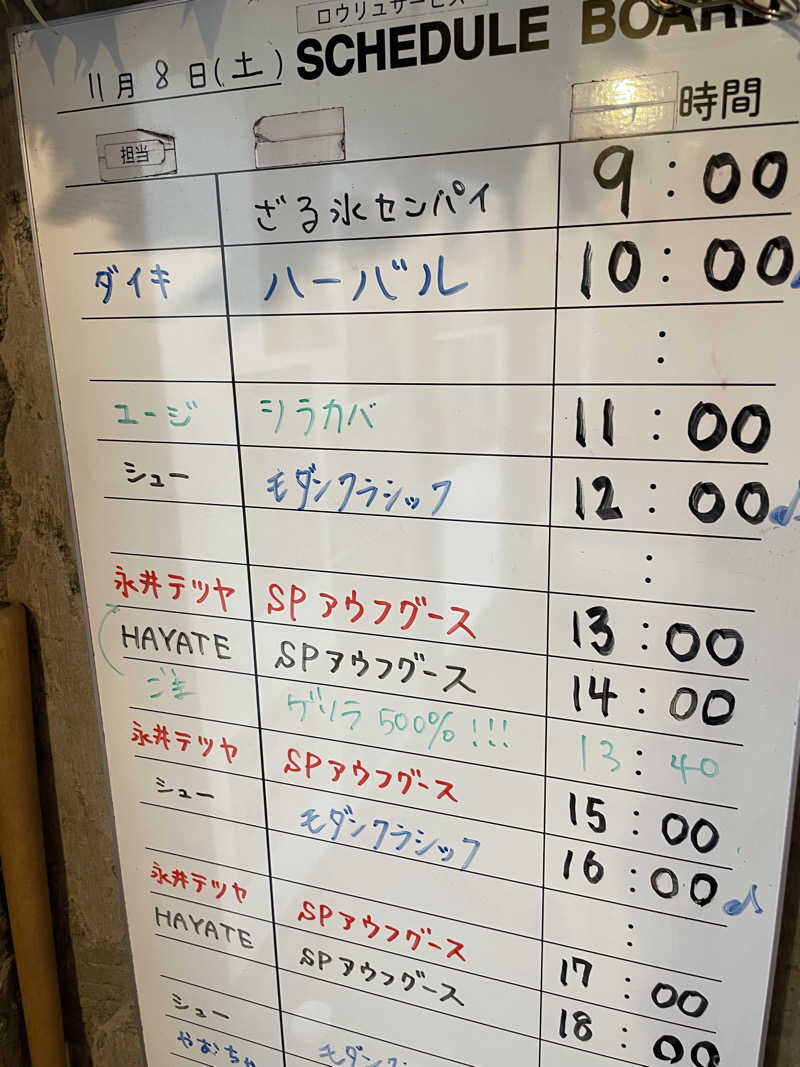 ロウリュサービス
11月8日(土) SCHEDULE BOARD
担当 時間
ざる氷センパイ 9:00
ダイキ ハーバル 10:00
:
ユージ シラカバ 11:00
シュー モダンクラシック 12:00♪
:
永井テツヤ SPアウフグース 13:00
HAYATE SPアウフグース 14:00
ゲリラ 500%!!! 13:40
永井テツヤ SPアウフグース 15:00
シュー モダンクラシック 16:00♪
:
永井テツヤ SPアウフグース 17:00
HAYATE SPアウフグース 18:00
シュー